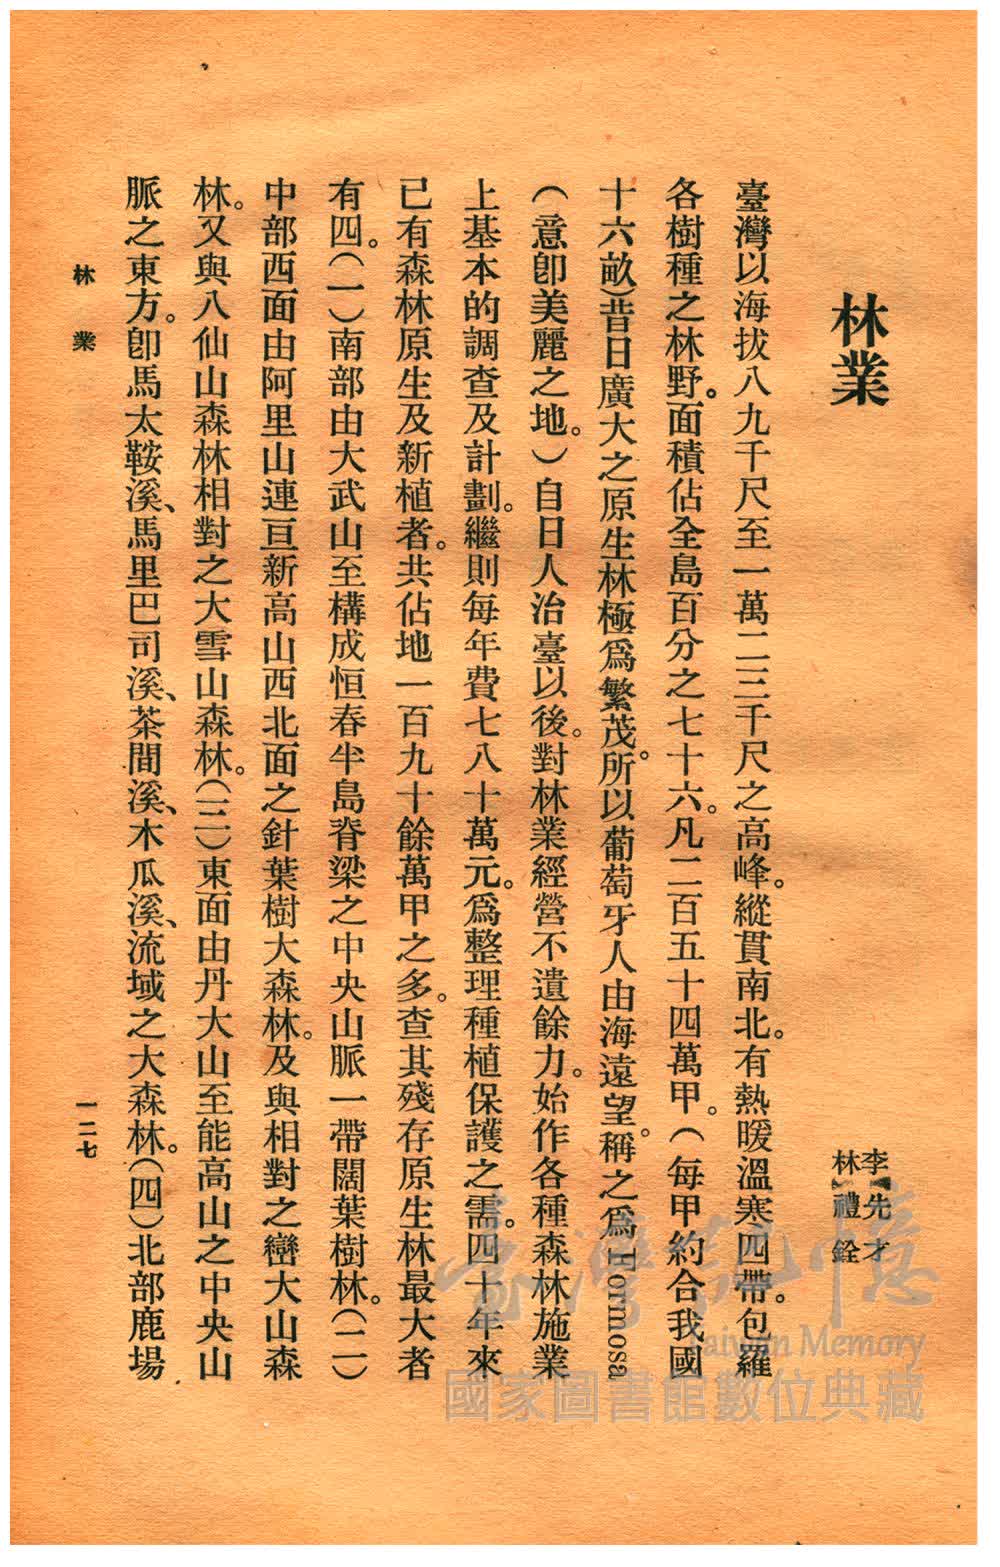 林業
李先才
林禮銓
臺灣以海拔八九千尺至一萬二三千尺之高峰。縱貫南北。有熱暖溫寒四帶。包羅
各樹種之林野。面積佔全島百分之七十六。凡二百五十四萬甲。（每甲約合我國
十六畝）昔日廣大之原生林極爲繁茂。所以葡萄牙人由海遠望。稱之爲Formosa
（意卽美麗之地。）自日人治臺以後。對林業經營不遺餘力。始作各種森林施業
上基本的調查及計劃。繼則每年費七八十萬元。爲整理種植保護之需。四十年來
已有森林原生及新植者。共佔地一百九十餘萬甲之多。查其殘存原生林最大者
有四。（一）南部由大武山至構成恒春半島脊梁之中央山脈一帶闊葉樹林。（二）
中部西面由阿里山連亘新高山西北面之針葉樹大森林。及與相對之巒大山森
林。又與八仙山森林相對之大雪山森林。（三）東面由丹大山至能高山之中央山
脈之東方。卽馬太鞍溪、馬里巴司溪、茶間溪、木瓜溪、流域之大森林。（四）北部鹿場
林業
一二七
臺灣記憶
Taiwan Memory
國家圖書館數位典藏